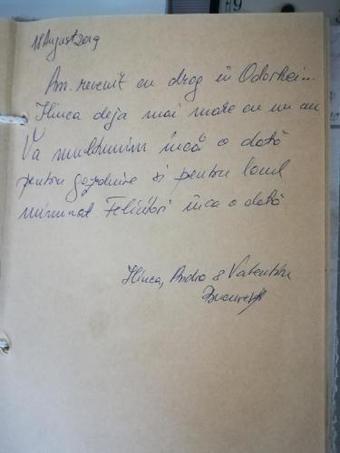 18 August 2019
Am revenit cu drag în Odorhei...
Ilinca deja mai mare cu un an
Vă mulțumim încă o dată
pentru găzduire și pentru locul
minunat Felicitări încă o dată
Ilinca, Andra & Valentin
București